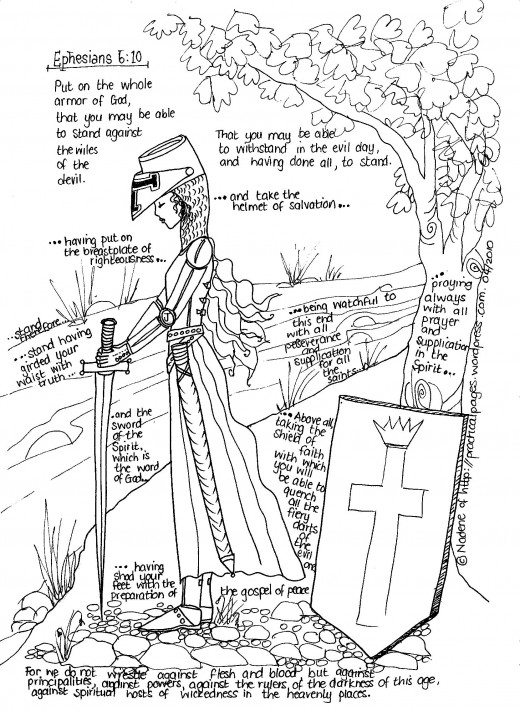 Ephesians 6:10
Put on the whole
armor of God,
that you may be able
to stand against
the wiles
of the
devil.
That you may be able
to withstand in the evil day,
and having done all, to stand.
...and take the
helmet of salvation...
...having put on
the breastplate of
righteousness...
...stand
therefore...
...stand having
girded your
waist with
truth...
...being watchful to
this end
with all
perseverance
and
supplication
for all
the
saints...
...praying
always
with all
prayer
and
supplication
in the
Spirit...
...and the
sword
of the
Spirit,
which is
the word
of God...
...Above all,
taking the
shield of
faith
with which
you will
be able to
quench
all the
fiery
darts
of
the
evil
one
...having
shod your
feet with the
preparation of
the gospel of peace
For we do not wrestle against flesh and blood, but against
principalities, against powers, against the rulers of the darkness of this age,
against spiritual hosts of wickedness in the heavenly places.
© Nadene of http://practicalpages.wordpress.com 04/2010